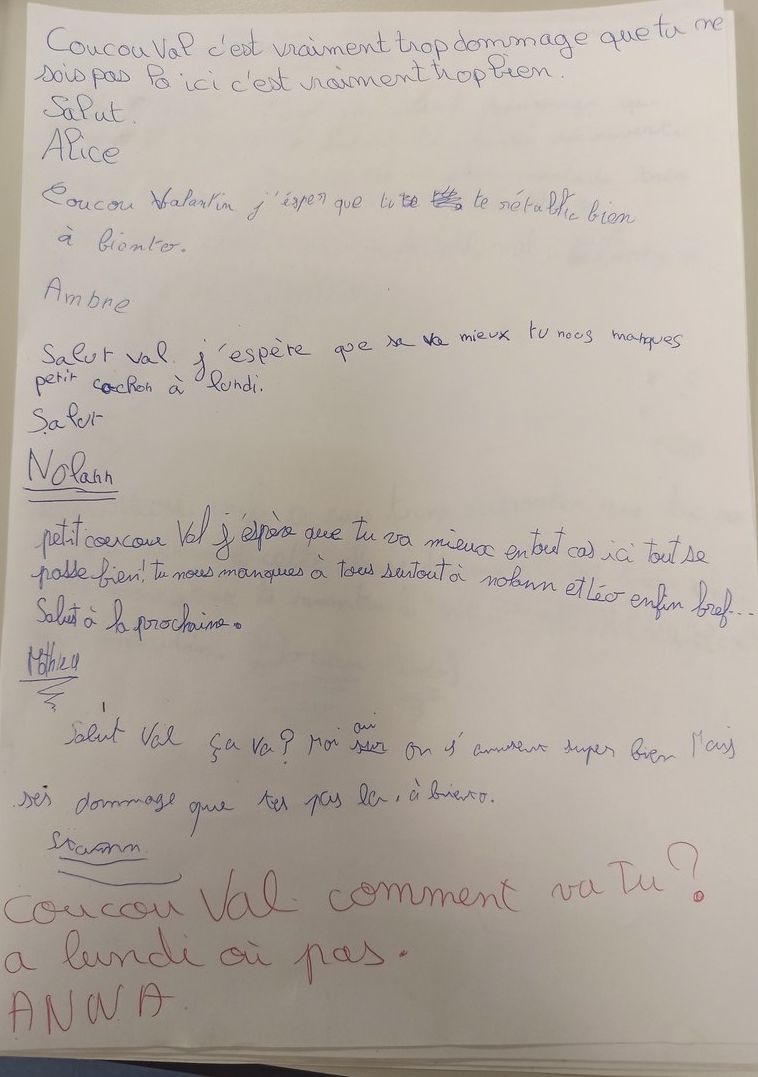 Coucou Val c'est vraiment trop dommage que tu ne
sois pas la ici c'est vraiment trop bien.
Salut.
Alice
Coucou Valantin j'ésper que tu te te rétablie bien
à biento.
Ambre
Salut val. j'espère que sa va mieux tu nous manques
petit cochon à lundi.
Salut
Nolann
petit coucou Val j'éspère que tu va mieux en tout cas ici tout se
passe bien! tu nous manques à tous surtout à nolann et Léo enfin bref...
Salut à la prochaine.
Mathieu
Salut Val ça va? Moi oui on s'amusent super bien Mais
ses dommage que tes pas la, à biento.
COUCOU Val comment va Tu?
a lundi où pas.
ANNA